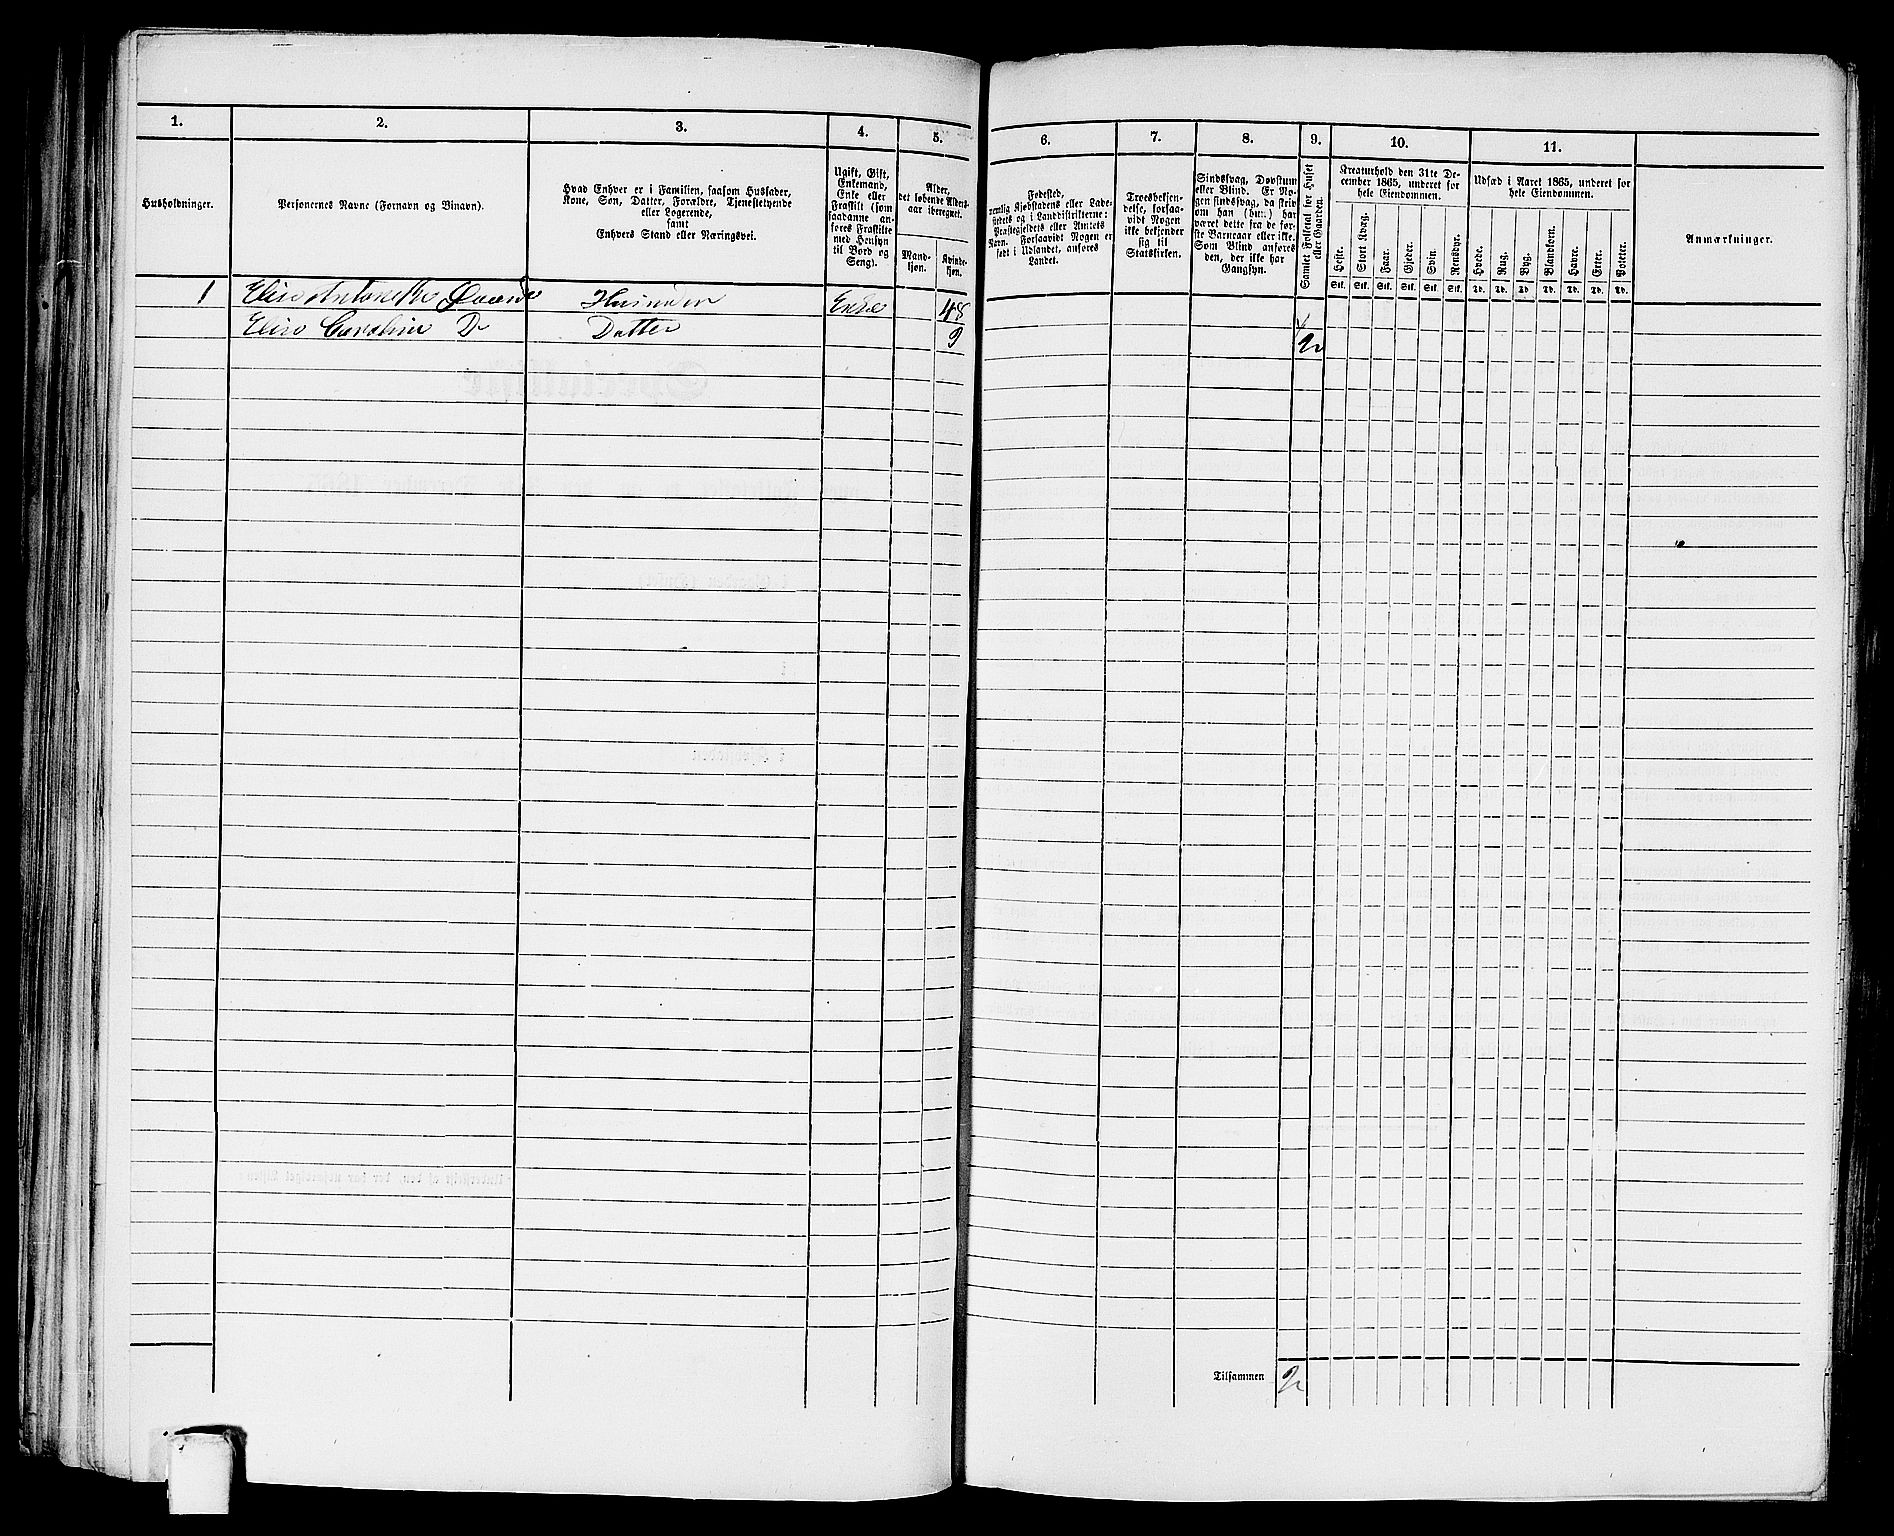 1. 2. 3. 4. 5. 6. 7. 8. 9. 10. 11.
Husholdninger.
Personernes Navne (Fornavn og Binavn).
Hvad Enhver er i Familien, saasom Husfader,
Kone, Søn, Datter, Forældre, Tjenestetyende
eller Logerende,
samt
Enhvers Stand eller Næringsvei.
Ugift, Gift,
Enkemand,
Enke eller
Fraskilt (som
saadanne an-
føres Fraskilte
med Hensyn
til Bord og
Seng).
Alder,
det løbende Alders-
aar iberegnet.
Mand-
kjøn.
Kvinde-
kjøn.
Fødested,
nemlig Kjøbstadens eller Lade-
stedets og i Landdistrikterne:
Præstegjeldets eller Amtets
Navn. Forsaavidt Nogen er
født i Udlandet, anføres
Landet.
Troesbekjen-
delse, forsaa-
vidt Nogen
ikke bekjender
sig til
Statskirken.
Sindssvag, Døvstum
eller Blind. Er No-
gen sindssvag, da skriv
om han (hun) har
været dette fra de før-
ste Barneaar eller ikke.
Som Blind anføres
den, der ikke har
Gangsyn.
Samlet Folketal for Huset
eller Gaarden.
Kreaturhold den 31te De-
cember 1865, underet for
hele Eiendommen.
Heste. Stort Kvæg. Faar. Gjeder. Svin. Rensdyr.
Stk. Stk. Stk. Stk. Stk. Stk.
Udsæd i Aaret 1865, underet for
hele Eiendommen.
Hvede. Rug. Byg. Blandkorn. Havre. Erter. Poteter.
Td. Td. Td. Td. Td. Td. Td.
Anmærkninger.
1 Elise Enke 48
Elise Caroline D Datter 9
2
Tilsammen 2